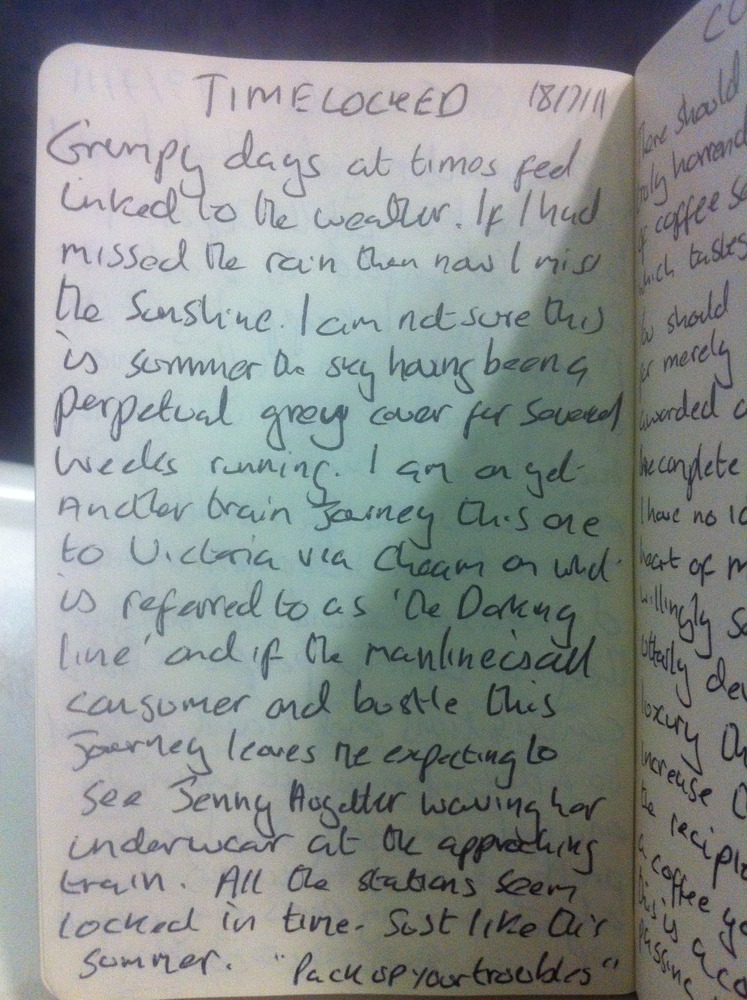 TIMELOCKED 18/7/11
Grumpy days at times feel
linked to the weather. If I had
missed the rain then now I miss
the sunshine. I am not sure this
is summer the sky having been a
perpetual grey cover for several
weeks running. I am on yet
Another train journey this one
to Victoria via Cheam on what
is referred to as 'the Dorking
line' and if the mainline is all
consumer and bustle this
journey leaves me expecting to
see Jenny Augutter waving her
underwear at the approaching
train. All the stations seem
locked in time. Just like this
summer. "Pack up your troubles"
CO
There should
truly horrend
of coffee se
which tastes
should
or merely
awarded a
be complete
I have no id
heart of m
willingly so
utterly dev
luxury th
increase
the recipi
a coffee yo
this is a co
passing